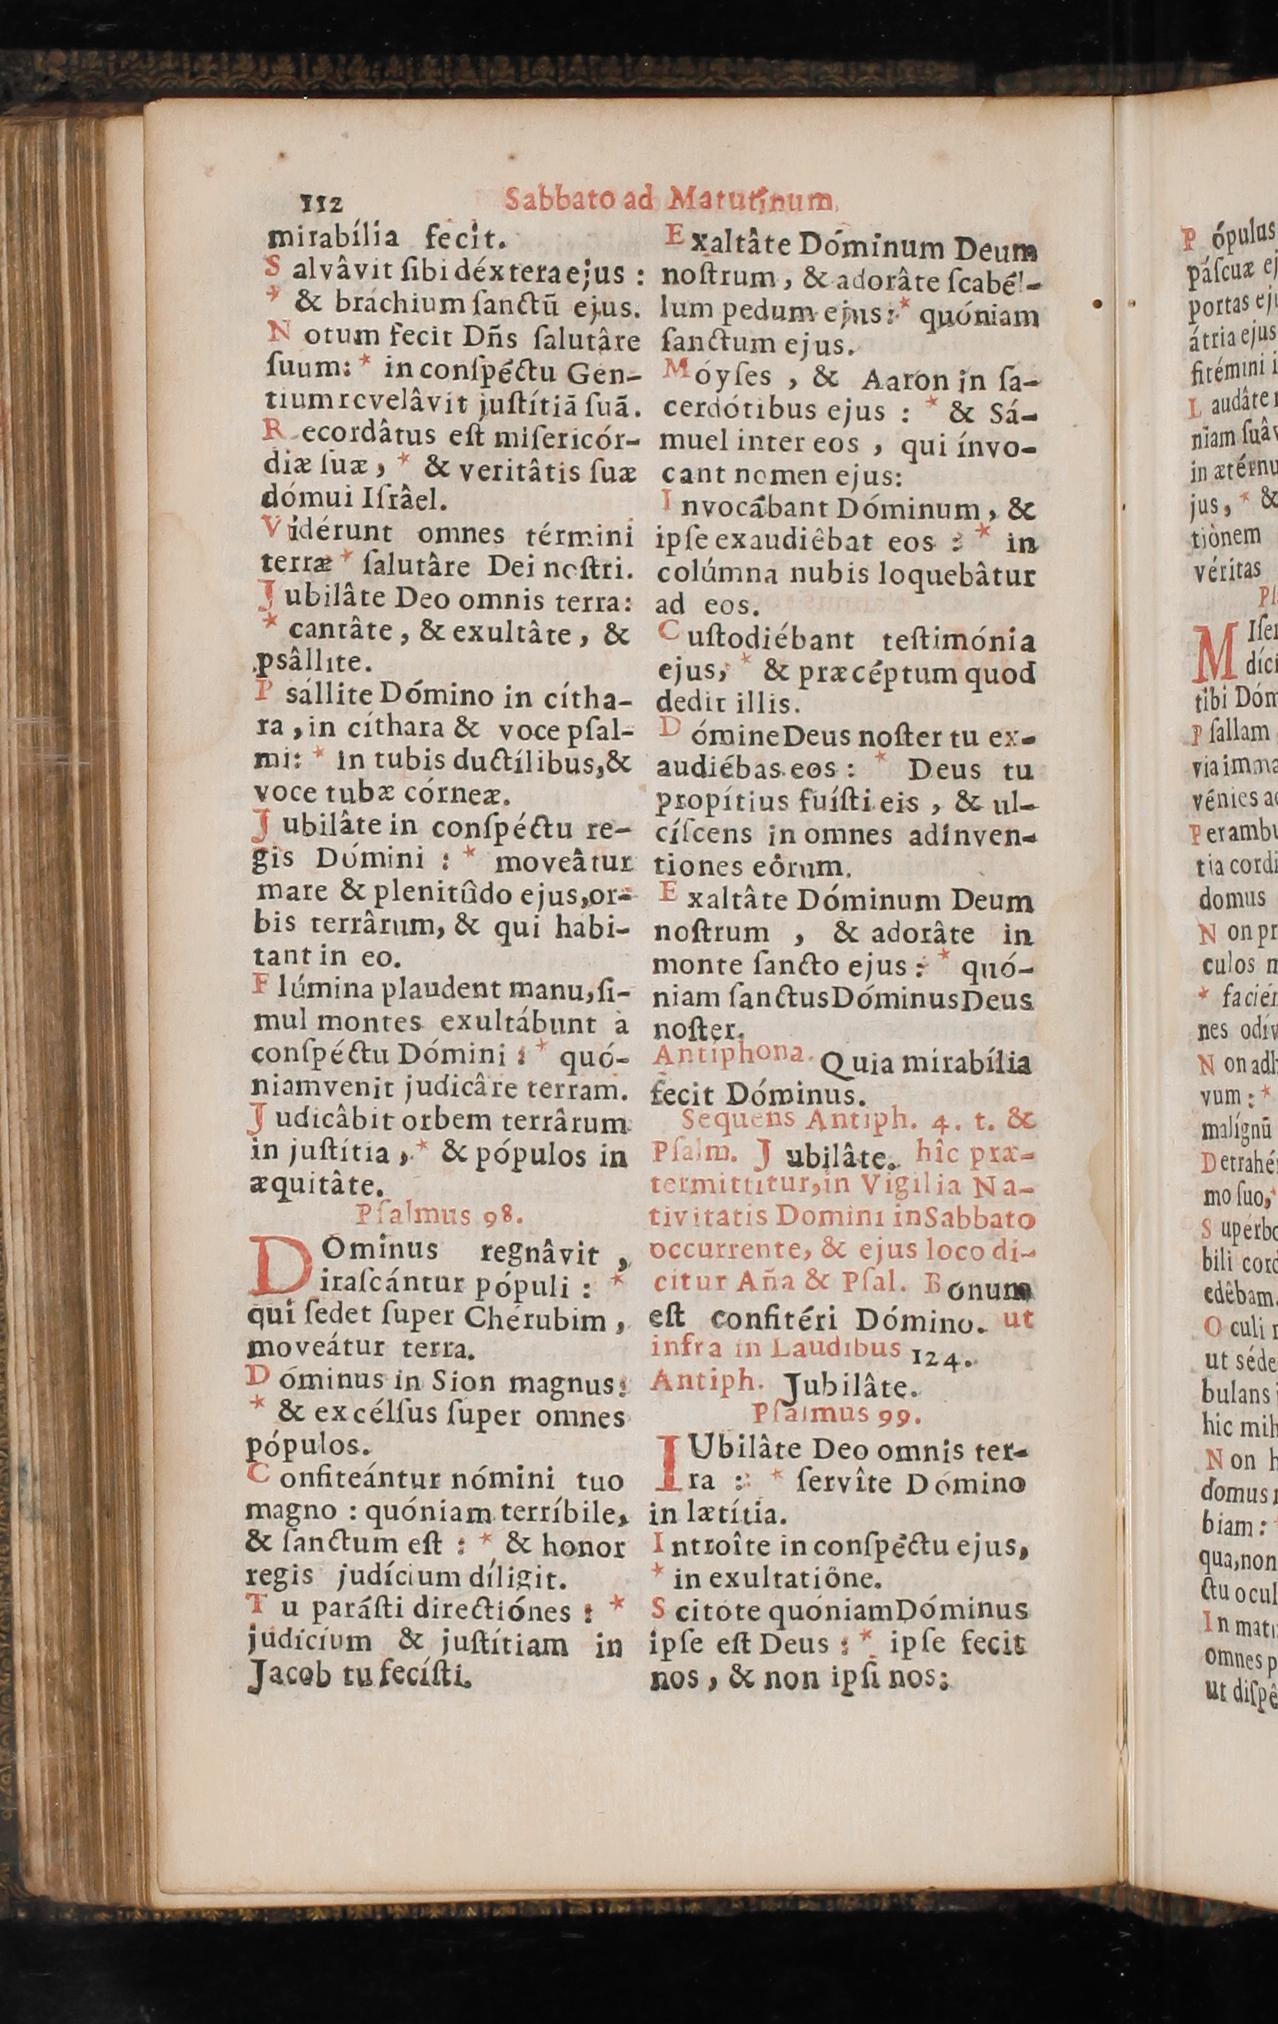 112 Sabbato ad Matutînum.
mirabília fecit.
Salvâvit ſibi déxtera ejus :
* & bráchium ſanctũ ejus.
Notum fecit Dñs ſalutâre
ſuum: * in conſpéctu Gen-
tium revelâvit juſtítiã ſuã.
Recordâtus eſt miſericór-
diæ ſuæ, * & veritâtis ſuæ
dómui Iſrâel.
Vidérunt omnes términi
terræ * ſalutâre Dei noſtri.
Jubilâte Deo omnis terra:
* cantâte, & exultâte, &
pſâllite.
Pſállite Dómino in cítha-
ra, in cíthara & voce pſal-
mi: * in tubis ductílibus, &
voce tubæ córneæ.
Jubilâte in conſpéctu re-
gis Dómini : * moveâtur
mare & plenitûdo ejus, or-
bis terrârum, & qui habi-
tant in eo.
Flúmina plaudent manu, ſi-
mul montes exultábunt à
conſpéctu Dómini : * quó-
niam venit judicâre terram.
Judicâbit orbem terrârum
in juſtítia, * & pópulos in
æquitâte.
Pſalmus 98.
DOminus regnâvit,
iraſcántur pópuli : *
qui ſedet ſuper Chérubim,
moveátur terra.
Dóminus in Sion magnus:
* & excélſus ſuper omnes
pópulos.
Confiteántur nómini tuo
magno : quóniam terríbile,
& ſanctum eſt : * & honor
regis judícium díligit.
Tu paráſti directiónes : *
judícium & juſtítiam in
Jacob tu fecíſti.
Exaltâte Dóminum Deum
noſtrum, & adorâte ſcabél-
lum pedum ejus : * quóniam
ſanctum ejus.
Móyſes, & Aaron in ſa-
cerdótibus ejus : * & Sá-
muel inter eos, qui ínvo-
cant nomen ejus:
Invocâbant Dóminum, &
ipſe exaudiêbat eos : * in
colúmna nubis loquebâtur
ad eos.
Cuſtodiébant teſtimónia
ejus, * & præcéptum quod
dedit illis.
Dómine Deus noſter tu ex-
audiébas eos : * Deus tu
propítius fuíſti eis, & ul-
cíſcens in omnes adinven-
tiones eôrum.
Exaltâte Dóminum Deum
noſtrum, & adorâte in
monte ſancto ejus : * quó-
niam ſanctus Dóminus Deus
noſter.
Antiphona. Quia mirabília
fecit Dóminus.
Sequens Antiph. 4. t. &
Pſalm. Jubilâte. hîc præ-
termittitur, in Vigilia Na-
tivitatis Domini in Sabbato
occurrente, & ejus loco di-
citur Aña & Pſal. Bonum
eſt confitéri Dómino. ut
infra in Laudibus 124.
Antiph. Jubilâte.
Pſalmus 99.
IUbilâte Deo omnis ter-
ra : * ſervîte Dómino
in lætítia.
Introîte in conſpéctu ejus,
* in exultatiône.
Scitóte quóniam Dóminus
ipſe eſt Deus : * ipſe fecit
nos, & non ipſi nos:
Pópulus
páſcuæ
portas
átria ejus
fitémini
Laudâte
niam
in
jus, * &
tiònem
véritas
MIſe
díci
tibi Dóm
Pſallam
via imma
vénies
Perambu
tia cordi
domus
Non
culos
* facién
nes odív
Non adh
vum : *
malígnũ
Detrahé
mo ſuo,
Supérbo
bili cord
edêbam.
Oculi
ut ſéde
bulans
hic mih
Non h
domus
biam :
qua, non
ctu ocul
In matu
omnes p
ut diſpê